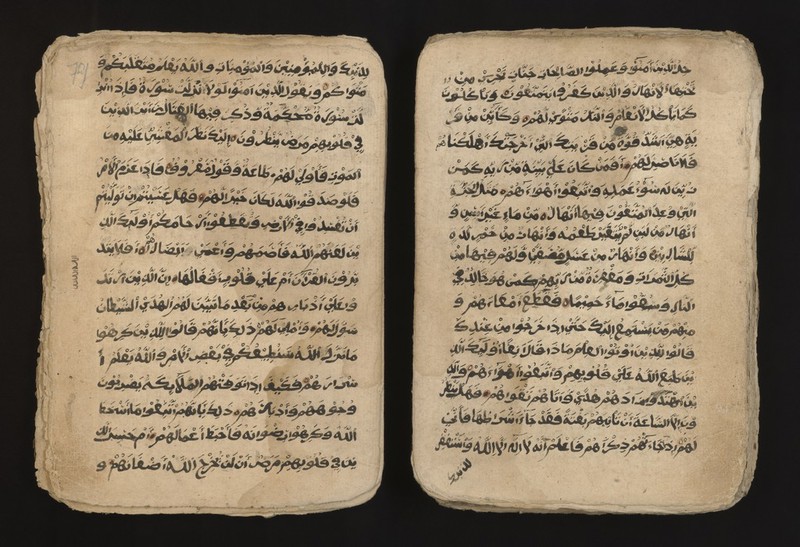 خل الذين امنوا وعملوا الصالحات جنات تجري من
تحتها الانهار والذين كفروا يتمتعون وياكلون
كما تاكل الانعام والنار مثوى لهم وكأين من قر
ية هي اشد قوة من قريتك التي اخرجتك اهلكناهم
فلا ناصر لهم افمن كان على بينة من ربه كمن
زين له سوء عمله واتبعوا اهواءهم مثل الجنة
التي وعد المتقون فيها انهار من ماء غير ءاسن و
انهار من لبن لم يتغير طعمه وانهار من خمر لذة
للشاربين وانهار من عسل مصفى ولهم فيها من
كل الثمرات ومغفرة من ربهم كمن هو خالد في
النار وسقوا ماء حميما فقطع امعاءهم و
منهم من يستمع اليك حتى اذا خرجوا من عندك
قالوا للذين اوتوا العلم ماذا قال ءانفا اولئك الذ
ين طبع الله على قلوبهم واتبعوا اهواءهم والذ
ين اهتدوا زادهم هدى وءاتاهم تقويهم فهل ينظر
ون الا الساعة ان تاتيهم بغتة فقد جاء اشراطها فانى
لهم اذا جاءتهم ذكراهم فاعلم انه لا اله الا الله واستغفر
لذنبك
لذنبك وللمؤمنين والمؤمنات والله يعلم متقلبكم و
مثواكم ويقول الذين ءامنوا لولا نزلت سورة فاذا انز
لت سورة محكمة وذكر فيها القتال رايت الذين
في قلوبهم مرض ينظرون اليك نظر المغشي عليه من
الموت فاولى لهم طاعة وقول معروف فاذا عزم الامر
فلو صدقوا الله لكان خيرا لهم فهل عسيتم ان توليتم
ان تفسدوا في الارض وتقطعوا ارحامكم اولئك الذ
ين لعنهم الله فاصمهم واعمى ابصارهم افلا يتد
برون القرءان ام على قلوب اقفالها ان الذين ارتد
وا على ادبارهم من بعد ما تبين لهم الهدى الشيطان
سول لهم واملى لهم ذلك بانهم قالوا للذين كرهوا
ما نزل الله سنطيعكم في بعض الامر والله يعلم ا
سرارهم فكيف اذا توفتهم الملائكة يضربون
وجوههم وادبارهم ذلك بانهم اتبعوا ما اسخط
الله وكرهوا رضوانه فاحبط اعمالهم ام حسب الذ
ين في قلوبهم مرض ان لن يخرج الله اضغانهم و